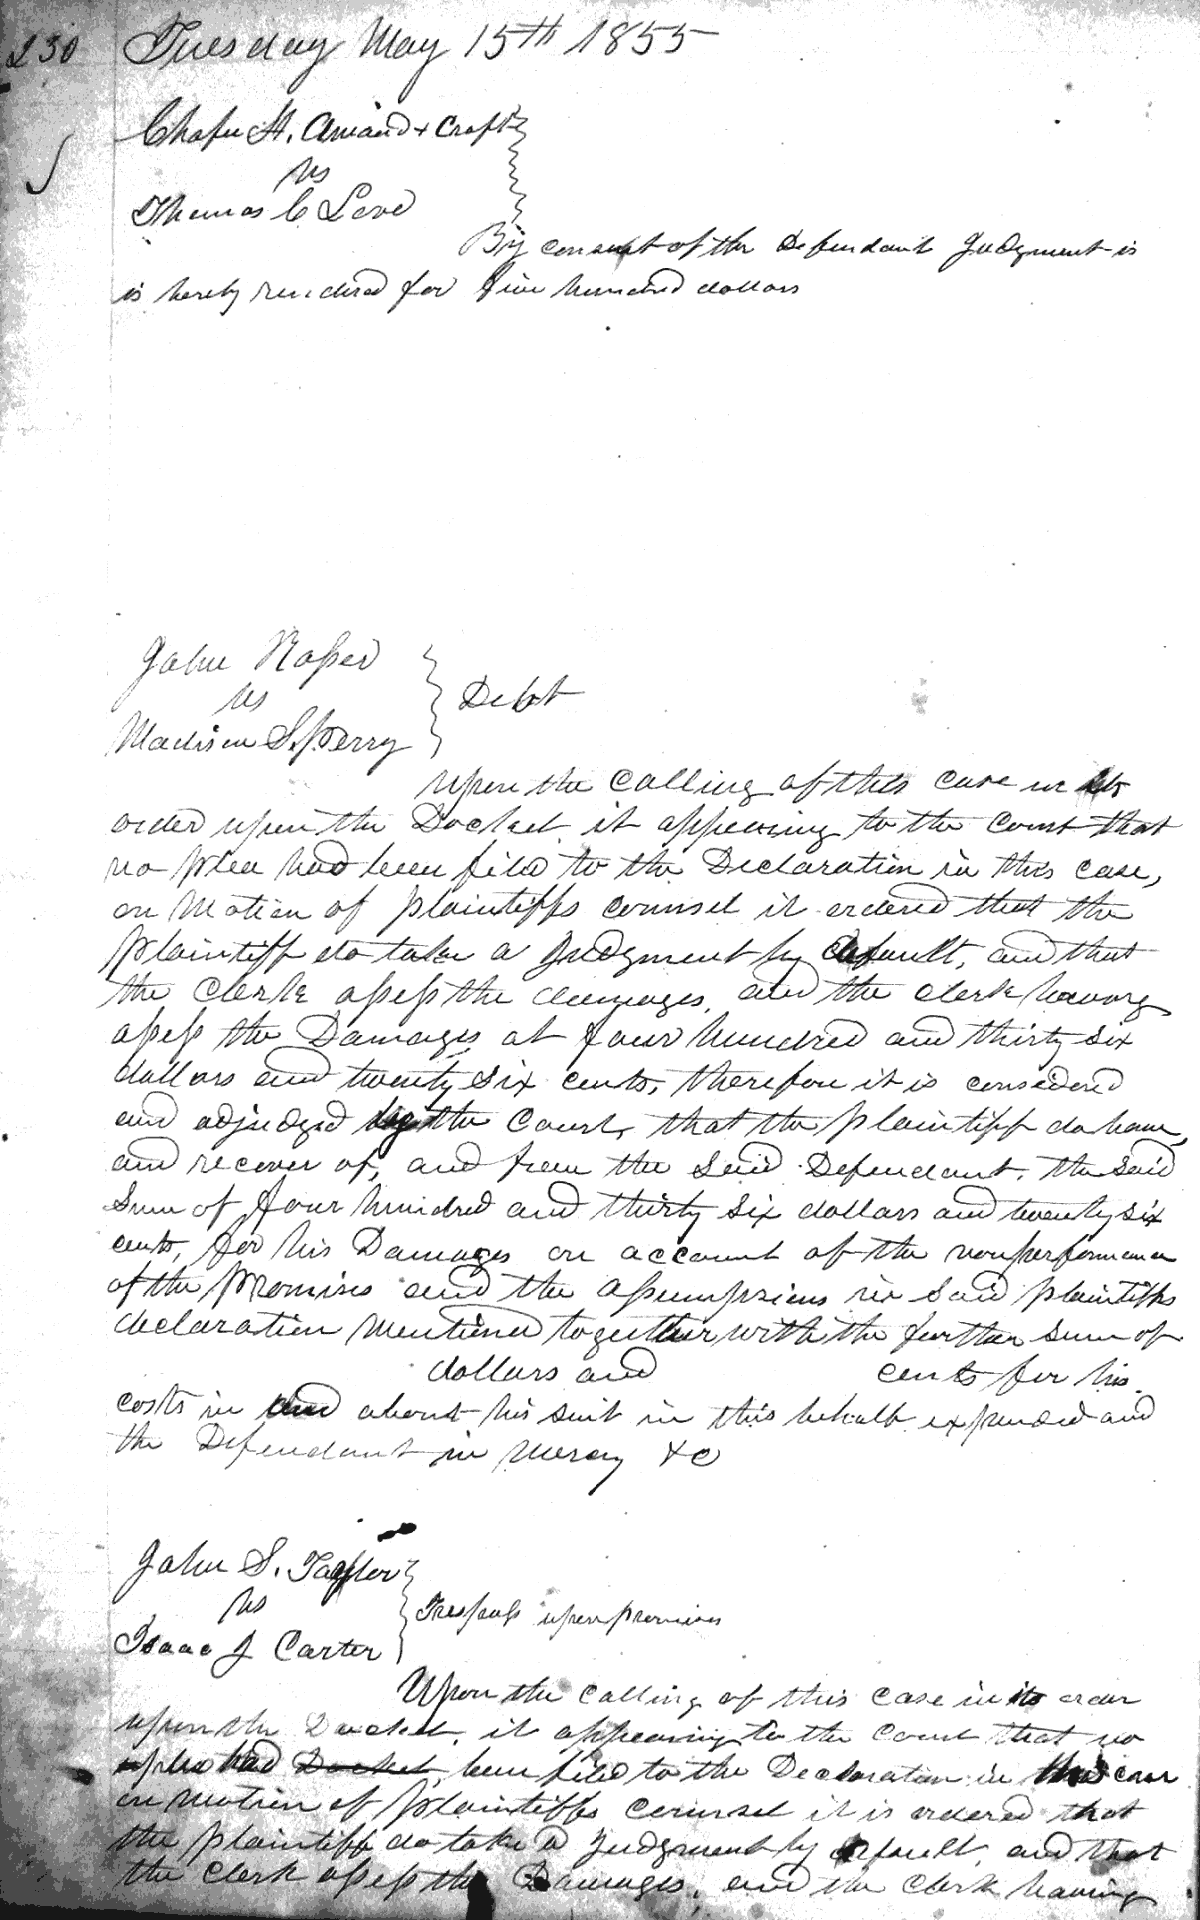 230 Tuesday May 15th 1855
Chafer H. Amand & Craft
vs
Thomas C Love
By consent of the Defendant Judgment is
is hereby rendered for five hundred dollars
John Roper
vs
Debt
Madison S. Perry
Upon the calling of this case in its
order upon the Docket it appearing to the court that
no plea had been filed to the Declaration in this case,
on Motion of plaintiffs counsel it ordered that the
plaintiff do take a Judgment by default, and that
the Clerk assess the damages, and the clerk having
assess the Damages at four hundred and thirty six
dollars and twenty six cents, therefore it is considered
and adjudged by the Court, that the plaintiff do have,
and recover of, and from the said Defendant, the said
sum of four hundred and thirty six dollars and twenty six
cents, for his Damages on account of the nonperformance
of the promises and the assumpsions in said plaintiffs
declaration mentioned together with the further sum of
dollars and cents for his
costs in and about his suit in this behalf expended and
the Defendant in mercy &c
John S. Taylor
vs
Trespass upon promises
Isaac J Carter
Upon the calling of this case in its order
upon the Docket, it appearing to the court that no
plea had Docket been filed to the Declaration in this case
on motion of plaintiffs counsel it is ordered that
the plaintiff do take a Judgment by default, and that
the clerk assess the Damages, and the clerk having